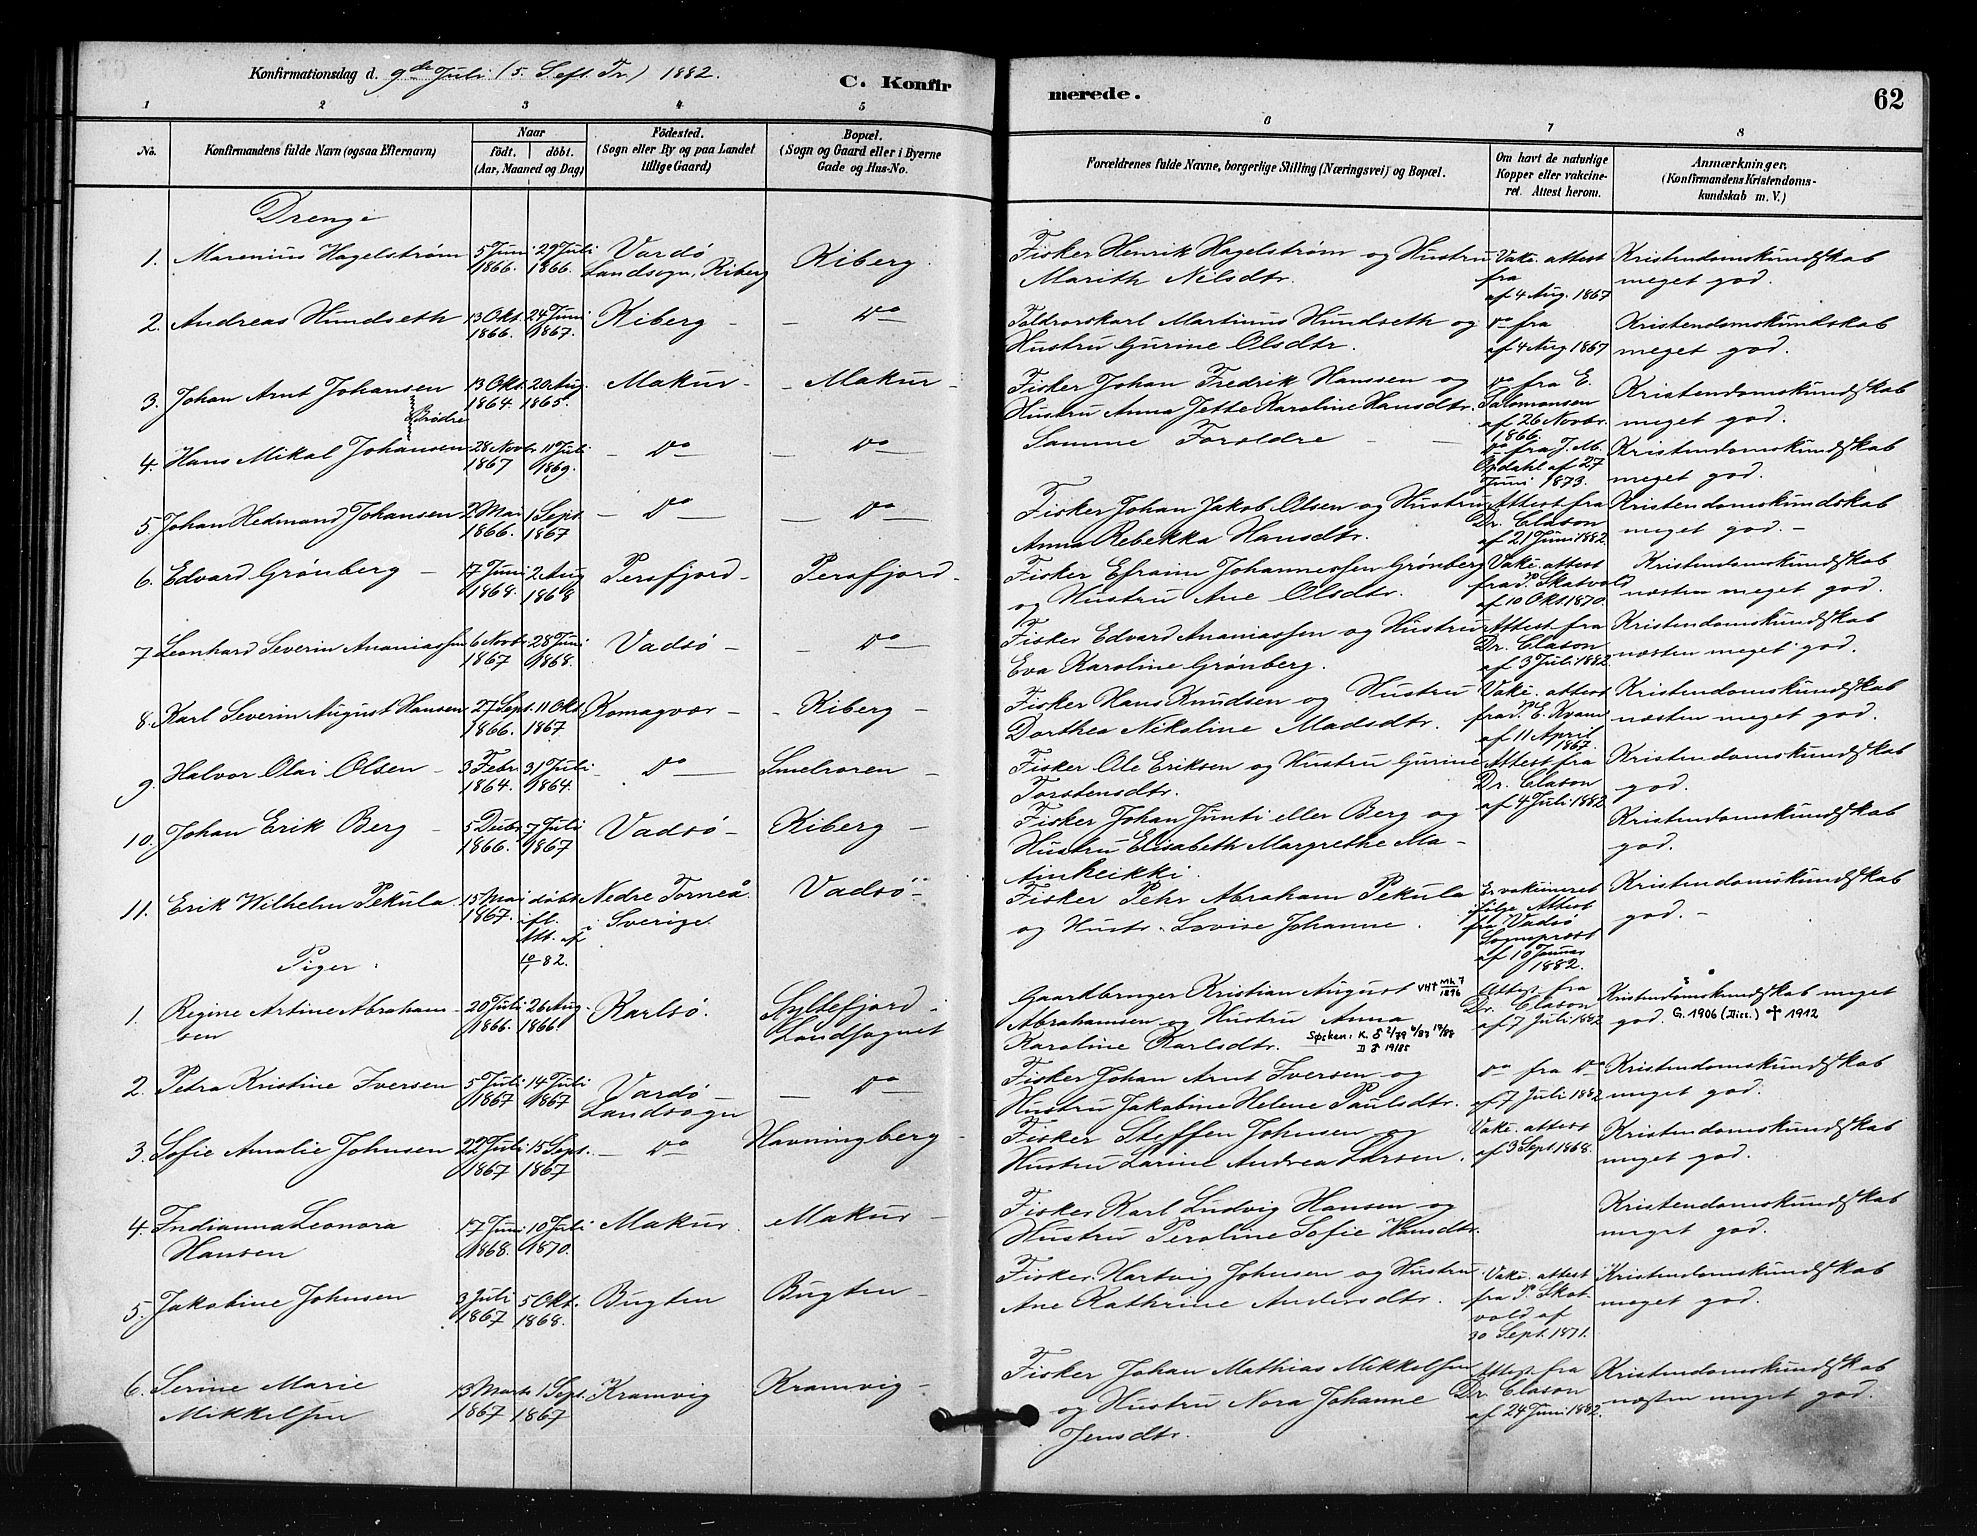 Konfirmationsdag d. 9de Juli (5. S. eft. Tr.) 1882.
C. Konfirmerede.
62
1 2 3 4 5 6 7 8
No.
Konfirmandens fulde Navn (ogsaa Efternavn)
Naar
født. | döbt.
(Aar, Maaned og Dag)
Födested.
(Sogn eller By og paa Landet
tillige Gaard)
Bopæl.
(Sogn og Gaard eller i Byerne
Gade og Hus-No.
Forældrenes fulde Navne, borgerlige Stilling (Næringsvei) og Bopæl.
Om havt de naturlige
Kopper eller vakcine-
ret. Attest herom.
Anmærkninger,
(Konfirmandens Kristendoms-
kundskab m. V.)
Drenge
1. Marenius Hagelstrøm 5 Juni 29 Juli Vardö Kiberg. Fisker Henrik Hagelstrøm og Hustru Vakc. attest Kristendomskundskab
1866. 1866. Landsogn, Kiberg Marith Nilsdtr. fra meget god.
af 4 Aug. 1867
2. Andreas Hundseth 13 Okt. 24 Juni Kiberg - - Do Toldrorskarl Martinus Hundseth og Do fra Kristendomskundskab
1866. 1867. Hustru Gurine Olsdtr. af 4 Aug 1867 meget god.
3. Johan Arnt Johansen 13 Okt. 20 Aug. Makur - - Makur - Fisker Johan Fredrik Hanssen og Do fra E. Kristendomskundskab
Brødre 1864. 1865. Hustru Anna Jette Karoline Hansdtr. Salomonsen meget god.
af 26 Novbr.
1866.
4. Hans Mikal Johansen 28 Novbr 11 Juli - Do - Do Samme Foræoldre Do fra J. M. Kristendomskundskab
1867 1869. Opdahl af 27 meget god.
Juni 1873.
5 Johan Hedmand Johansen 2 Mai 1 Sept. - Do - - Do Fisker Johan Jakob Olsen og Hustru Attest fra Kristendomskundskab
1866. 1867 Anna Rebekka Hansdtr. Dr. Clason meget god. -
af 21 Juni 1882
6. Edvard Grönberg - 17 Juni 2 Aug Persfjord - Persfjord - Fisker Efraim Johannessen Grönberg Vakc. attest Kristendomskundskab
1868. 1868 og Hustru Ane Olsdtr. fra P. Skatvold næsten meget god.
af 10 Okt 1870.
7 Leonhard Severin Ananiassen 6 Novbr 28 Juni Vadsö - - Do Fisker Edvard Ananiassen og Hustru Attest fra Kristendomskundskab
1867 1868. Eva Karoline Grönberg. Dr. Clason næsten meget god.
af 3 Juli 1882
8. Karl Severin August Hansen 27 Sept. 11 Okt. Komagvær - - Kiberg - Fisker Hans Knudsen og Hustru Vakc. attest Kristendomskundskab
1866. 1867 Dorthea Nikoline Madsdtr. fra P. E. Kvam næsten meget god.
af 11 April
1867.
9. Halvor Olai Olsen - 3 Febr. 31 Juli - Do - Smelroren - Fisker Ole Eriksen og Hustru Gurine Attest fra Kristendomskundskab
1864. 1864. Torstensdtr. Dr. Clason god.
af 4 Juli 1882
10. Johan Erik Berg - 5 Decbr 7 Juli Vadsö - Kiberg - Fisker Johan Junti eller Berg og Kristendomskundskab
1866. 1867 Hustru Elisabeth Margrethe Ma- god.
tinheikki.
11. Erik Wilhelm Pekula 15 Mai döbt Nedre Torneå Vadsö - Fisker Pehr Abraham Pekula Er vakcineret Kristendomskundskab
1867. ifl. i Sverige. og Hustr. Lovise Johanne. ifølge Attest god. -
Att. af fra Vadsö
10/1 82. Sognepræst
af 10 Januar
1882.
Piger.
1. Regine Artine Abraham- 20 Juli 26 Aug. Karlsö. Syltefjord - Gaardbruger Kristian August VHt Mk.7/1896 Attest fra Kristendomskundskab meget
sen 1866. 1866. Landsognet Abrahamsen og Hustru Anna Dr. Clason god. G. 1906 (Diss.) † 1912
Karoline Karlsdtr. Søsken: K. ♂ 2/79 6/83 19/88 af 7 Juli 1882
D ♂ 19/85
2. Petra Kristine Iversen 5 Juli 14 Juli Vardö - - Do Fisker Johan Arnt Iversen og Do fra Do Kristendomskundskab
1867 1867 Landsogn Hustru Jakobine Helene Paulsdtr. af 7 Juli 1882 meget god.
3. Sofie Amalie Johnsen 22 Juli 15 Sept. - Do Havningberg - Fisker Steffen Johnsen og Vakc. attest Kristendomskundskab
1867 1867 Hustru Larine Andrea Larsen. af 3 Sept 1868. meget god.
4. Indianna Leonora 17 Juni 10 Juli Makur. Makur - Fisker Karl Ludvig Hansen og Kristendomskundskab
Hansen 1868. 1870. Hustru Peroline Sofie Hansdtr. meget god.
5. Jakobine Johnsen 3 Juli 5 Okt. Bugten Bugten - Fisker Hartvig Johnsen og Hustru Vakc. attest Kristendomskundskab
1867 1868. Ane Kathrine Andersdtr. fra P. Skat- meget god.
vold af
30 Sept. 1871.
6. Serine Marie 13 Marts 1 Sept. Kramvig Kramvig - Fisker Johan Mathias Mikkelsen Attest fra Kristendomskundskab
Mikkelsen 1867 1867 og Hustru Nora Johanne Dr. Clason næsten meget god.
Jensdtr. af 24 Juni 1882.